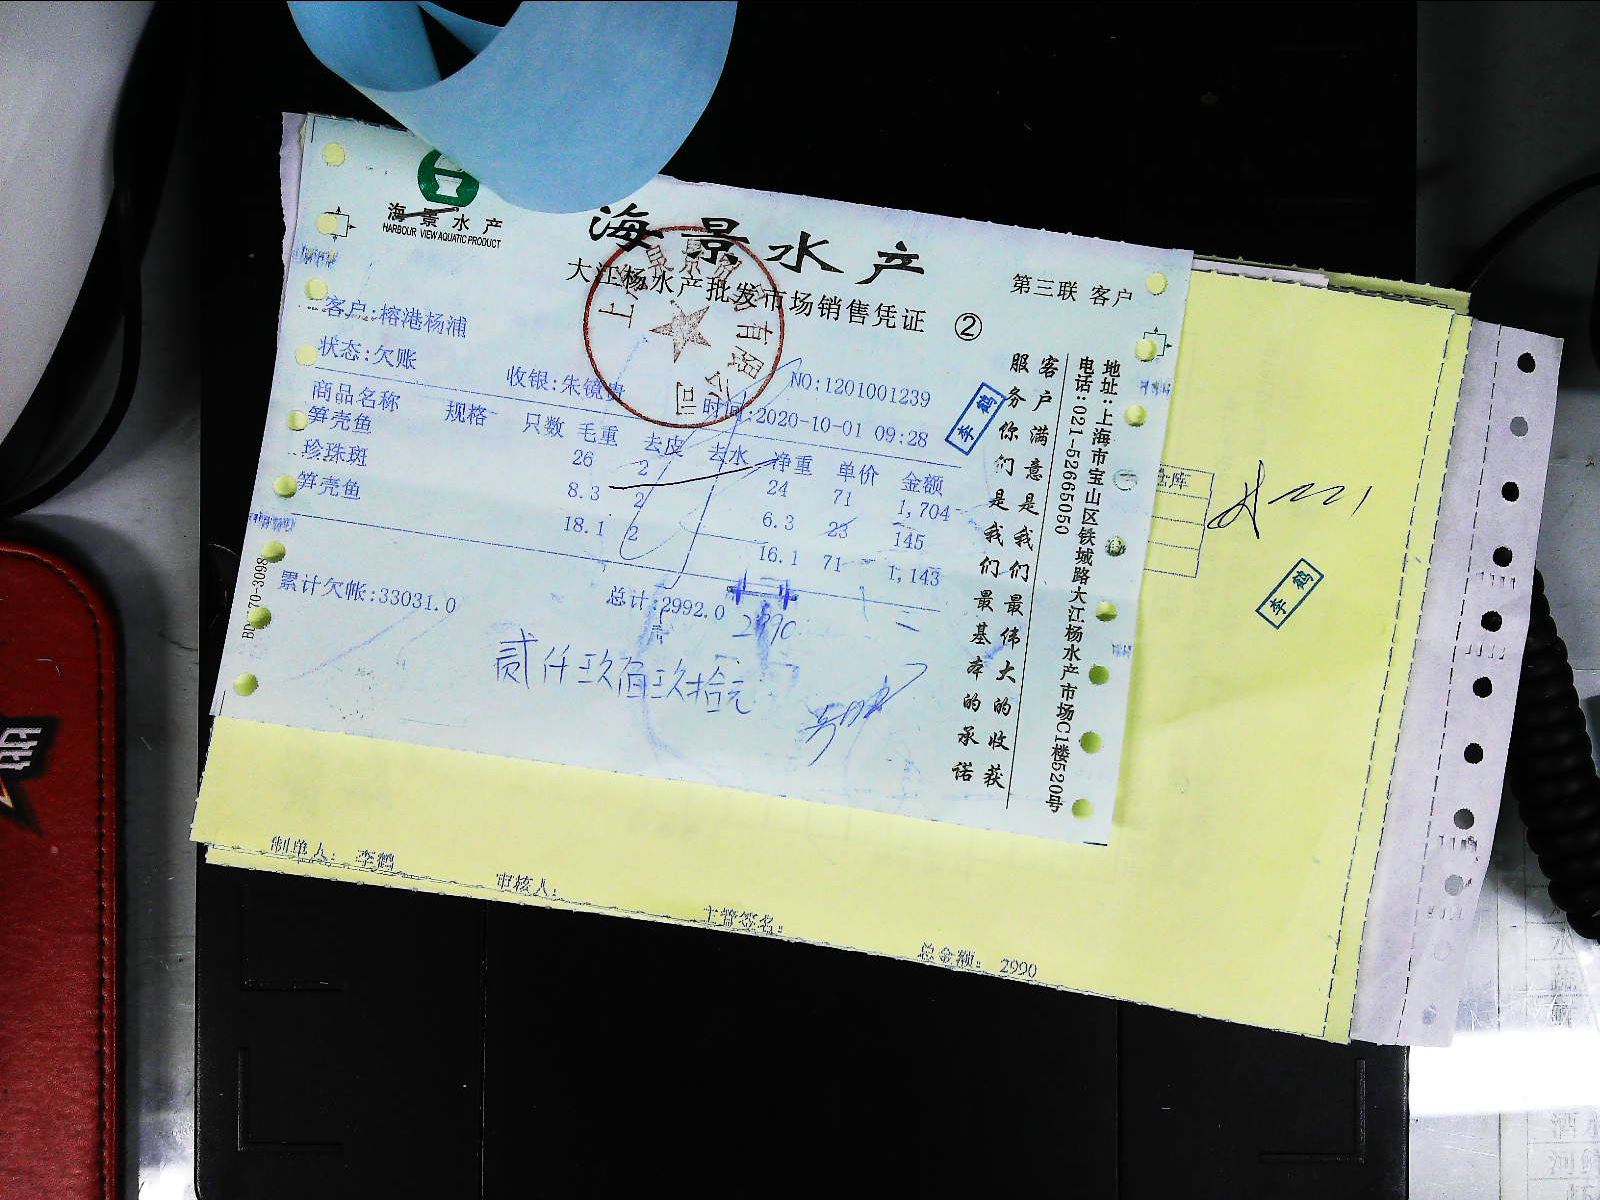 海景水产
HARBOUR VIEW AQUATIC PRODUCT
海景水产
大江杨水产批发市场销售凭证 ②
第三联 客户
客户:榕港杨浦
状态:欠账
收银:朱镜贵
NO:1201001239
时间:2020-10-01 09:28
商品名称 规格 只数 毛重 去皮 去水 净重 单价 金额
笋壳鱼 26 2 24 71 1,704
珍珠斑 8.3 2 6.3 23 145
笋壳鱼 18.1 2 16.1 71 1,143
累计欠帐:33031.0 总计:2992.0
2990
贰仟玖佰玖拾元
BD-70-3098
李鹤
客户满意是我们最伟大的收获
服务你们是我们最基本的承诺
地址:上海市宝山区铁城路大江杨水产市场C1楼520号
电话:021-52665050
有限公司
仓库
李鹤
制单人: 李鹤
审核人:
主管签名:
总金额: 2990